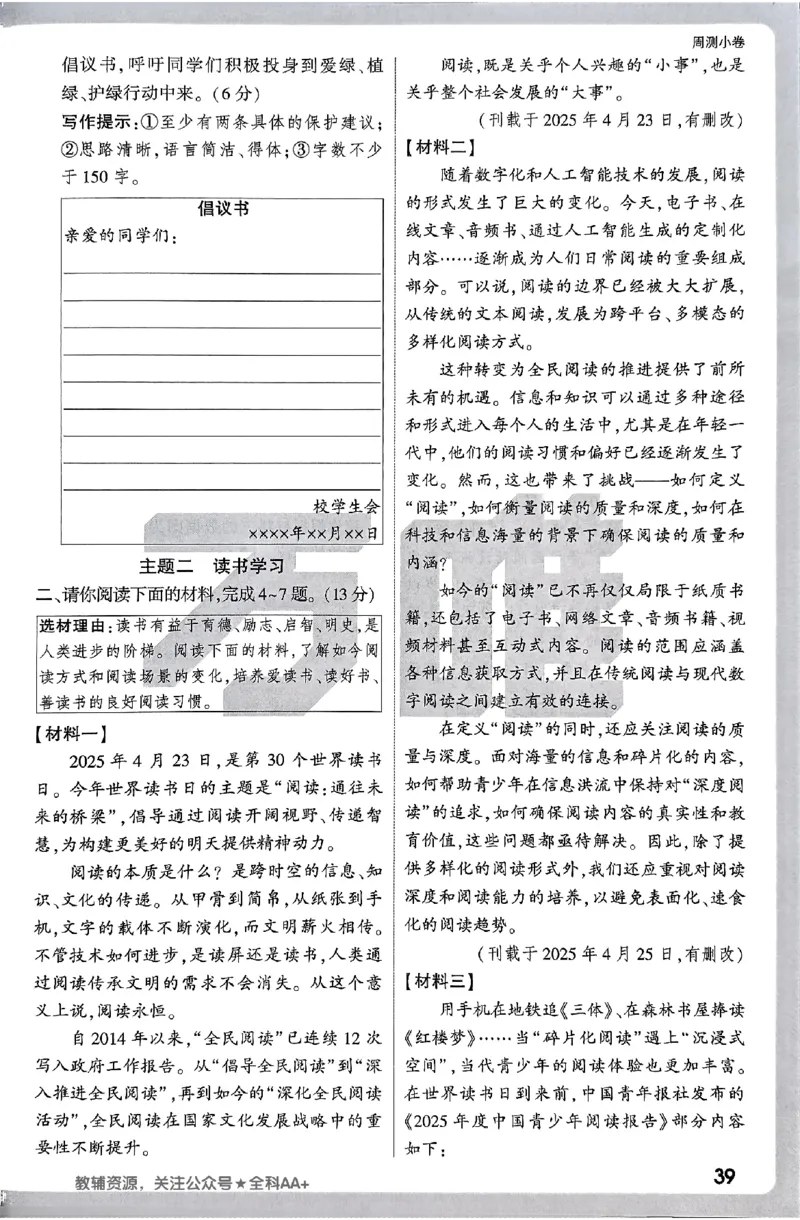 周测小卷
倡议书,呼吁同学们积极投身到爱绿、植
绿、护绿行动中来。(6分)
写作提示:①至少有两条具体的保护建议;
②思路清晰,语言简洁、得体;③字数不少
于150字。
倡议书
亲爱的同学们:
校学生会
××××年××月××日
主题二 读书学习
二、请你阅读下面的材料,完成4~7题。(13分)
选材理由:读书有益于育德、励志、启智、明史,是
人类进步的阶梯。阅读下面的材料,了解如今阅
读方式和阅读场景的变化,培养爱读书、读好书、
善读书的良好阅读习惯。
【材料一】
2025年4月23日,是第30个世界读书
日。今年世界读书日的主题是“阅读:通往未
来的桥梁”,倡导通过阅读开阔视野、传递智
慧,为构建更美好的明天提供精神动力。
阅读的本质是什么?是跨时空的信息、知
识、文化的传递。从甲骨到简帛,从纸张到手
机,文字的载体不断演化,而文明薪火相传。
不管技术如何进步,是读屏还是读书,人类通
过阅读传承文明的需求不会消失。从这个意
义上说,阅读永恒。
自2014年以来,“全民阅读”已连续12次
写入政府工作报告。从“倡导全民阅读”到“深
入推进全民阅读”,再到如今的“深化全民阅读
活动”,全民阅读在国家文化发展战略中的重
要性不断提升。
阅读,既是关乎个人兴趣的“小事”,也是
关乎整个社会发展的“大事”。
(刊载于2025年4月23日,有删改)
【材料二】
随着数字化和人工智能技术的发展,阅读
的形式发生了巨大的变化。今天,电子书、在
线文章、音频书、通过人工智能生成的定制化
内容……逐渐成为人们日常阅读的重要组成
部分。可以说,阅读的边界已经被大大扩展,
从传统的文本阅读,发展为跨平台、多模态的
多样化阅读方式。
这种转变为全民阅读的推进提供了前所
未有的机遇。信息和知识可以通过多种途径
和形式进入每个人的生活中,尤其是在年轻一
代中,他们的阅读习惯和偏好已经逐渐发生了
变化。然而,这也带来了挑战——如何定义
“阅读”,如何衡量阅读的质量和深度,如何在
科技和信息海量的背景下确保阅读的质量和
内涵?
如今的“阅读”已不再仅仅局限于纸质书
籍,还包括了电子书、网络文章、音频书籍、视
频材料甚至互动式内容。阅读的范围应涵盖
各种信息获取方式,并且在传统阅读与现代数
字阅读之间建立有效的连接。
在定义“阅读”的同时,还应关注阅读的质
量与深度。面对海量的信息和碎片化的内容,
如何帮助青少年在信息洪流中保持对“深度阅
读”的追求,如何确保阅读内容的真实性和教
育价值,这些问题都亟待解决。因此,除了提
供多样化的阅读形式外,我们还应重视对阅读
深度和阅读能力的培养,以避免表面化、速食
化的阅读趋势。
(刊载于2025年4月25日,有删改)
【材料三】
用手机在地铁追《三体》、在森林书屋捧读
《红楼梦》……当“碎片化阅读”遇上“沉浸式
空间”,当代青少年的阅读体验也更加丰富。
在世界读书日到来前,中国青年报社发布的
《2025年度中国青少年阅读报告》部分内容
如下:
39
教辅资源,关注公众号★全科AA+
万唯